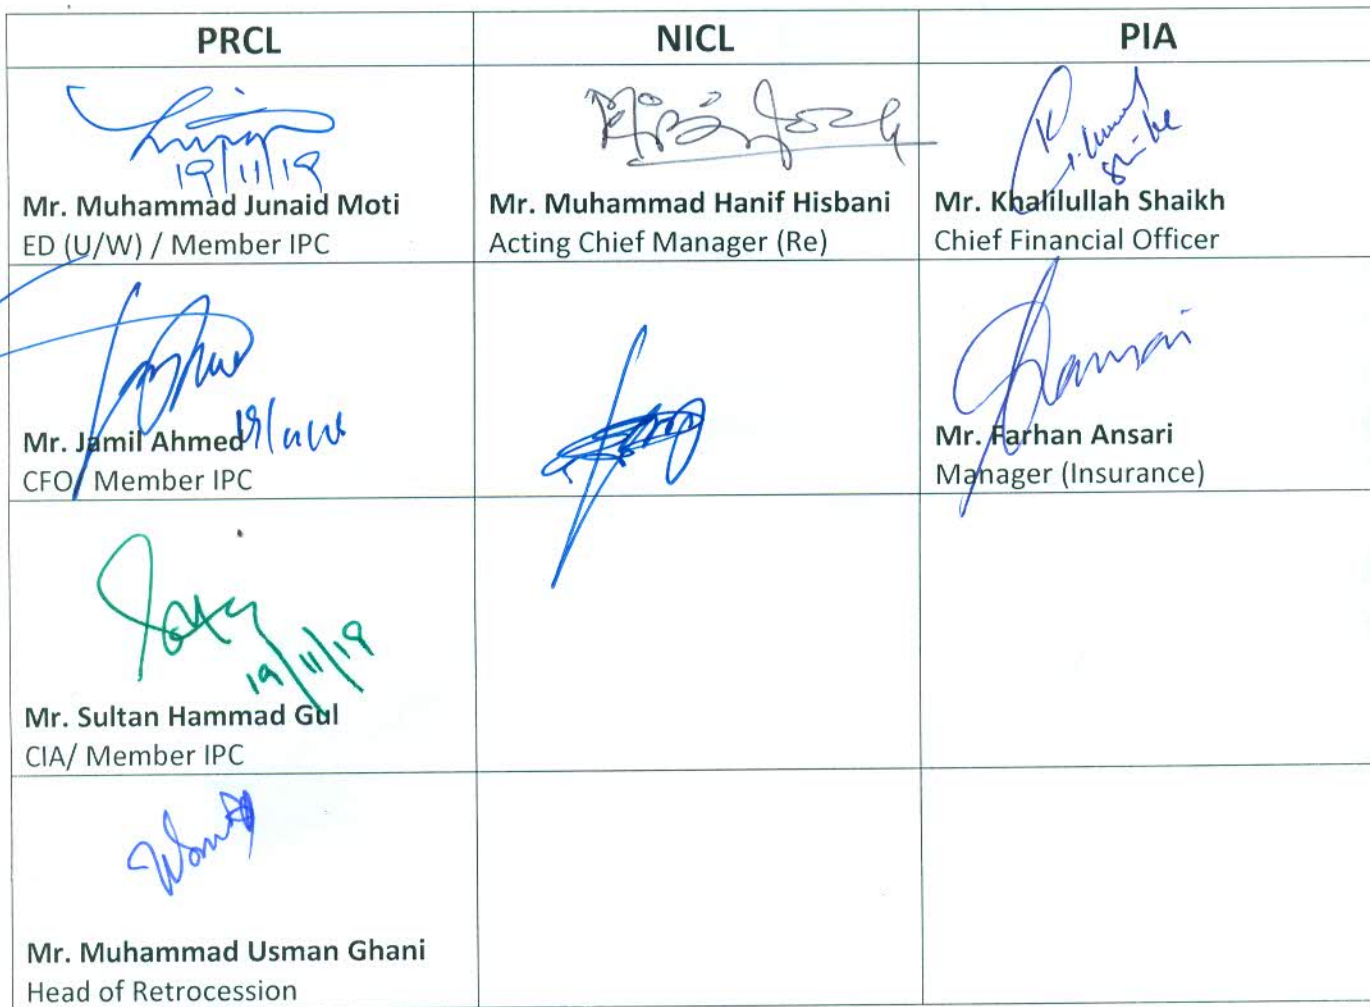 PRCL NICL PIA
19/11/19
Mr. Muhammad Junaid Moti
ED (U/W) / Member IPC
Mr. Muhammad Hanif Hisbani
Acting Chief Manager (Re)
Mr. Khalilullah Shaikh
Chief Financial Officer
Mr. Jamil Ahmed
CFO/ Member IPC
Mr. Farhan Ansari
Manager (Insurance)
19/11/19
Mr. Sultan Hammad Gul
CIA/ Member IPC
Mr. Muhammad Usman Ghani
Head of Retrocession